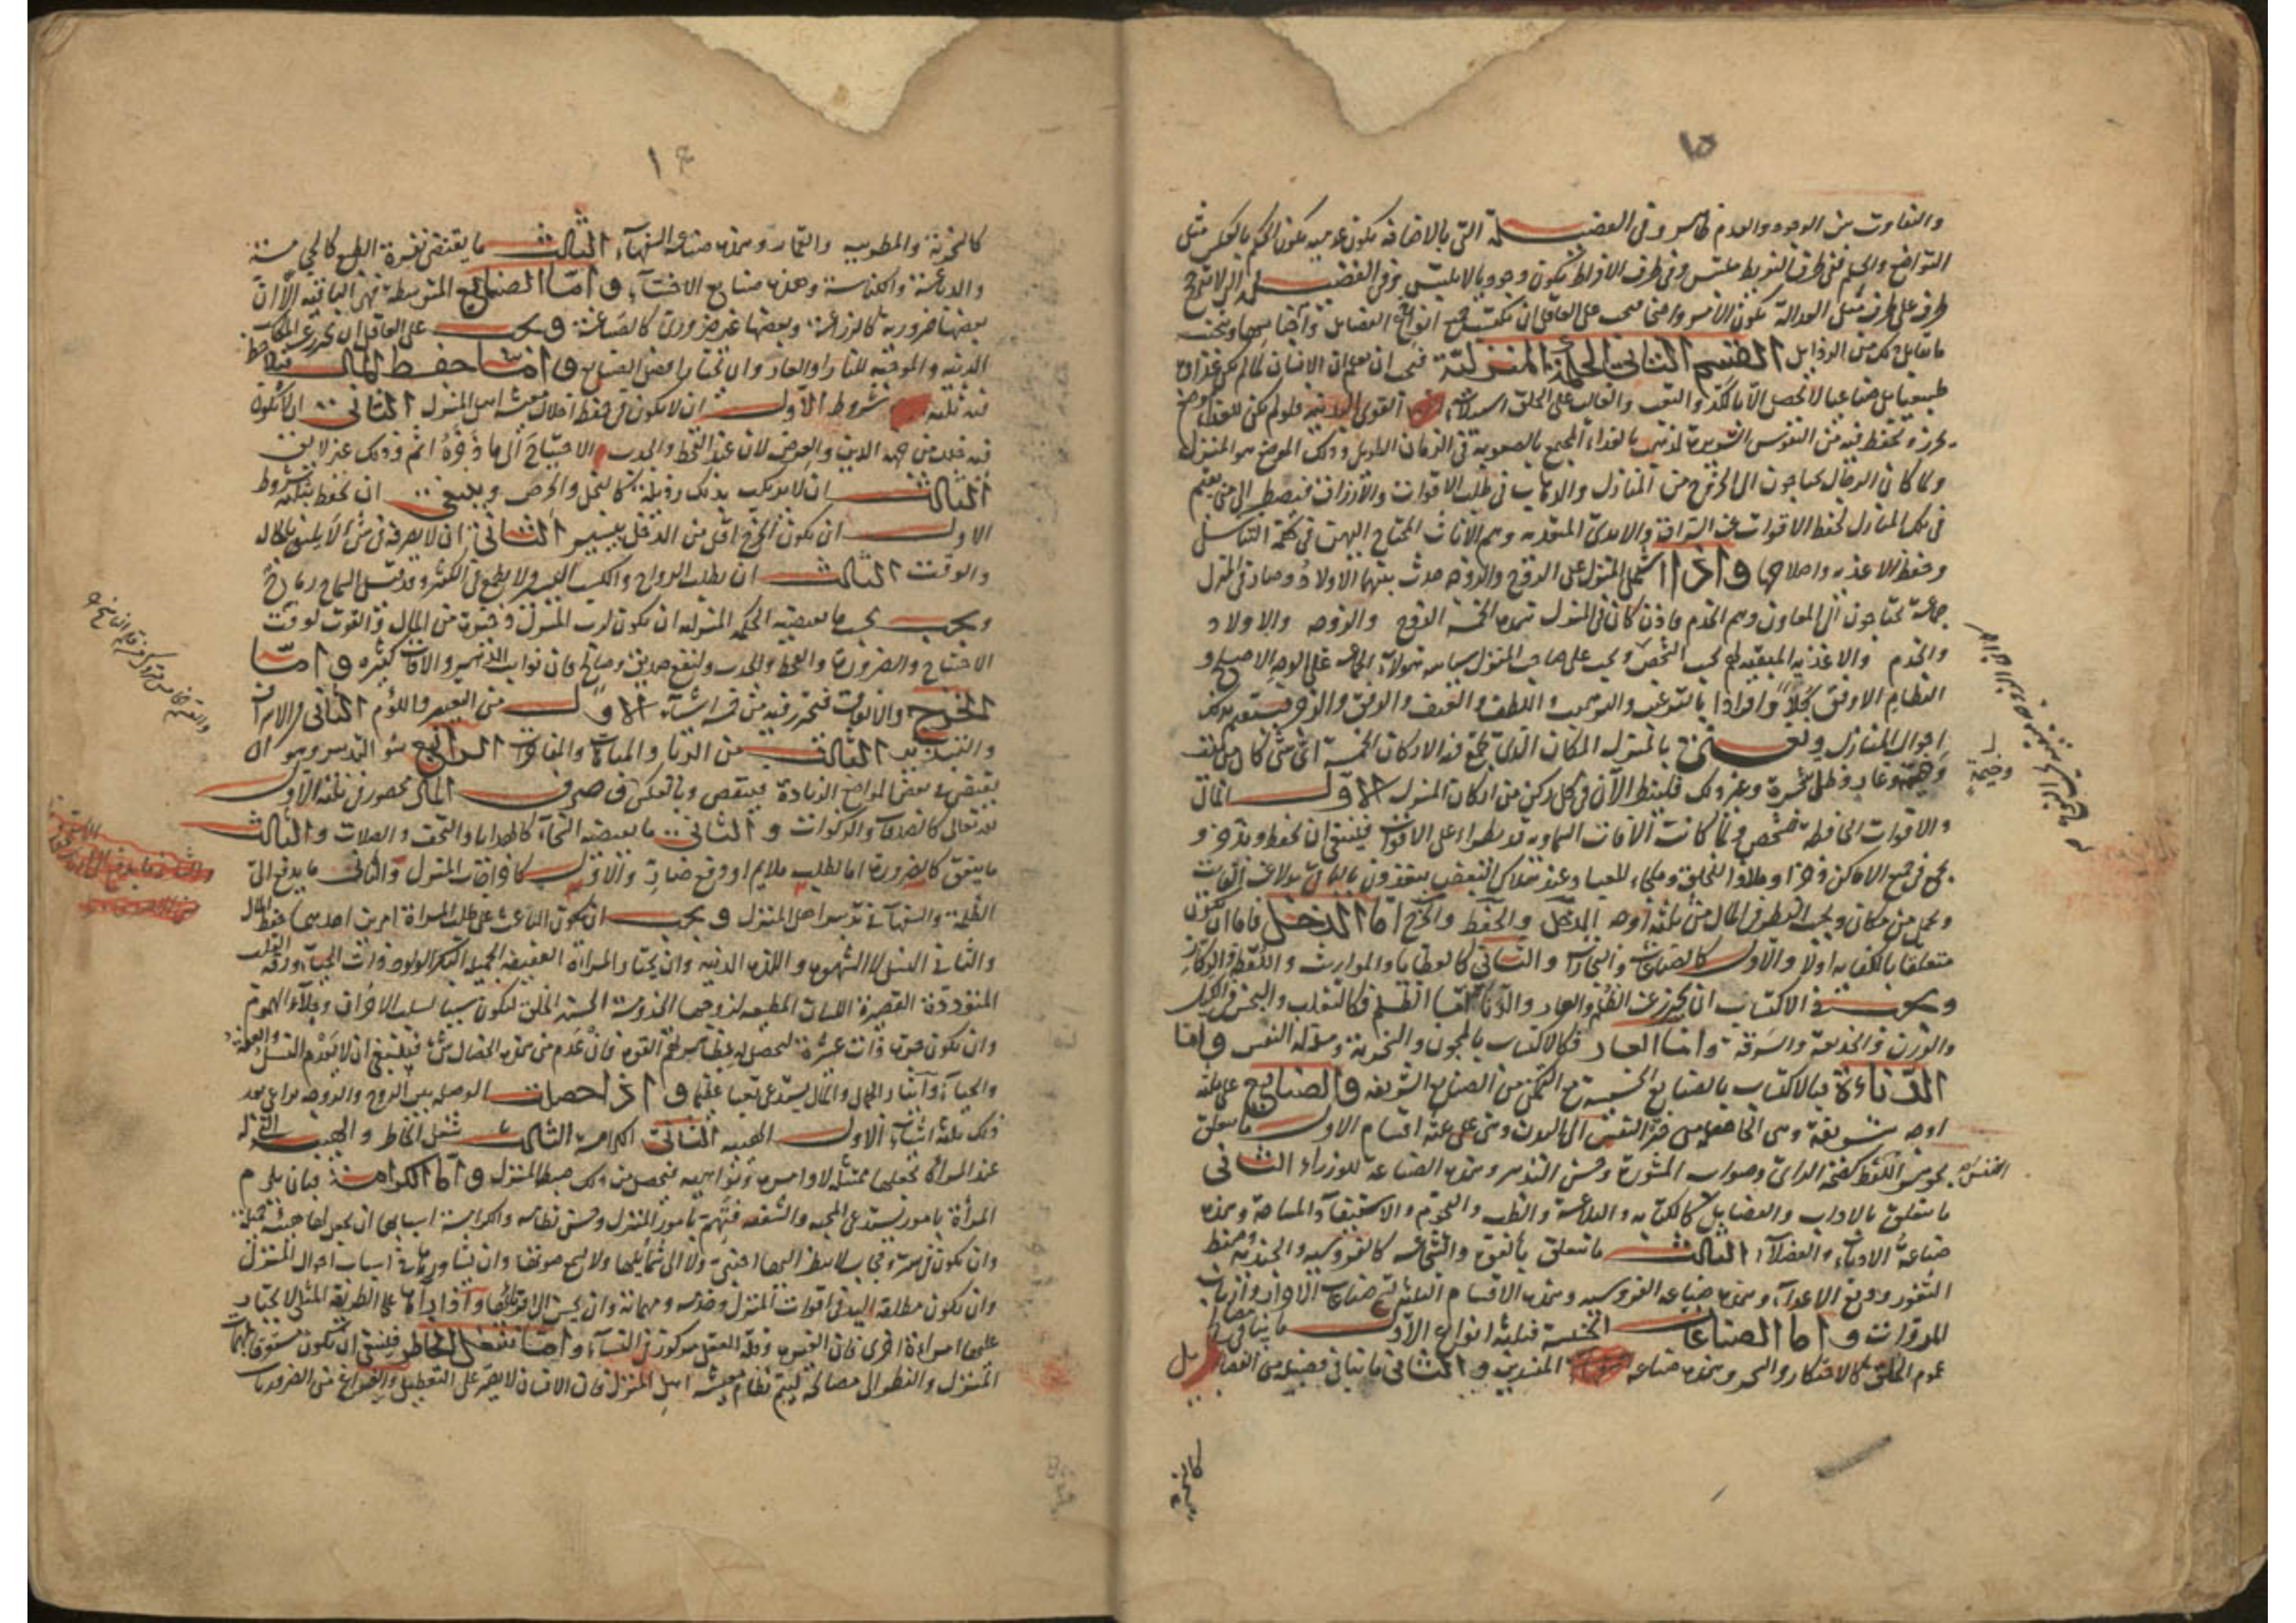 ١٥
والتفاوت بين الوجود والعدم ظاهر وفي الفضيلة التي بالاضافه يكون عدميه يكون الحكم بالعكس مثل
التواضع والحلم ففي طرف التفريط ملتبس وفي طرف الافراط يكون وجوديا لا يلتبس وفي الفضيلة التي لا ترجح
طرف على طرف مثل العدالة يكون الامر واضحا فيجب على العاقل ان يكتسب جميع انواع الفضايل واجناسها ويجتنب
ما يقابل ذلك من الرذايل القسم الثاني الحكمة المنزلية فيجب ان يعلم ان الانسان لما لم يكن غذاؤه
طبيعيا بل صناعيا لا يحصل الا بالكد والتعب والغالب على الخلق استيلاء القوى البدنيه فلو لم يكن للغذاء موضع
يحرز ويحفظ فيه من النفوس الشريرة لذهب بالغداء المجتمع بالصعوبه في الزمان الطويل وذلك الموضع هو المنزل
ولما كان الرجال يحتاجون الى الخروج من المنازل والذهاب في طلب الاقوات والارزاق فيضطر الى من يقيم
في تلك المنازل لحفظ الاقوات عن السراق والايدي المتعديه وهم الاناث المحتاج اليهن في حكمة التناسل
وحفظ الاغذيه واصلاحها واذا اشتمل المنزل على الزوج والزوجه حدث بينهما الاولاد وصار في المنزل
جماعة يحتاجون الى المعاون وهم الخدم فاذن كان في المنزل هذه الخمسة الزوج والزوجه والاولاد
والخدم والاغذيه المبقيه لهم بحسب الشخص ويجب على صاحب المنزل سياسه هولاء الجماعه على الوجه الاصلح و
النظام الاوفق جملا وافرادا بالترغيب والترهيب واللطف والعنف والرفق فيستقيم بذلك
احوال المنازل ونعني بالمنزل المكان الذي يجمع فيه الاركان الخمسة اي شي كان من
وخيمة وغار وظل شجرة وغير ذلك فلينظر الآن في كل ركن من اركان المنزل الاول المال
والاقوات الحافظه للشخص ولما كانت الآفات السماويه قد تطراء على الاقوات فينبغي ان تحفظ وتدخر و
تجمع في جميع الاماكن ذخرا وملاذا للخلق وملجاء للعباد عند هلاك البعض
ويحمل من مكان ويجب النظر في المال من ثلثة اوجه الدخل والحفظ والخرج اما الدخل فاما ان يكون
متعلقا بالكفايه اولا والاول كالصناعات والتجارات والثاني كالعطايا والمواريث واللقط والركاز
ويجب في الاكتساب ان يحترز عن الظلم والعار والدناءة اما الظلم فكالتغلب والبخس في الكيل
والوزن والخديعة والسرقة واما العار فكالاكتساب بالمجون والسخرية ومذلة النفس واما
الدناءة فبالاكتساب بالصنايع الخسيسة مع التمكن من الصنايع الشريفه والصنايع على ثلثة
اوجه شريفة وهي الحاصله من قوة النفس الى البدن وهي على ثلثة اقسام الاول ما يتعلق
بجوهر العقل كصحة الراي وصواب المشورة وحسن التدبير وهذه الصناعة للوزراء الثاني
ما يتعلق بالاداب والفضايل كالكتابه والبلاغة والطب والنجوم والاستيفاء والمساحة وهذه
صناعة الادباء والفضلاء الثالث ما يتعلق بالقوة والشجاعه كالفروسيه والجنديه وحفظ
الثغور ودفع الاعداء وهذه صناعه الفروسيه وهذه الاقسام الثلثة صناعات الاحرار وارباب
المروات واما الصناعات الخسيسة فثلثة انواع الاول ما ينافي مصالح
عموم الخلق كالاحتكار والسحر وهذه صناعه المفسدين والثاني ما ينافي فضيلة من الفضايل
كالسخرية
كالسخرية والمطربيه والقمار وهذه صناعه السفهاء الثالث ما يقتضي نفرة الطبع كالحجامة
والدباغة والكناسة وهذه صنايع الاخساء واما الصنايع المتوسطة فهي الباقيه الا ان
بعضها ضرورية كالزراعة وبعضها غير ضروري كالصياغة ويجب على العاقل ان يحترز عن المكاسب
الدنيه والموقعه للنار والعار وان يختار افضل الصنايع واما حفظ المال فيلاحظ
فيه ثلثة شروط الاول ان لا يكون في حفظه اختلال معيشة اهل المنزل الثاني ان لا يكون
فيه خلل من جهة الدين والعرض لان عند القحط والجدب الاحتياج الى ما ذخره اثم وذلك غير لايق
الثالث ان لا يرتكب بذلك رذيلة كالبخل والحرص وينبغي ان يحفظ بثلثة شروط
الاول ان يكون الخرج اقل من الدخل بيسير الثاني ان لا يصرفه في شي لا يليق بالحال
والوقت الثالث ان يطلب الرواج والكسب اليسير ولا يطمع في الكثير وقد قيل السماح رباح
ويجب بحسب ما يقتضيه الحكمة المنزليه ان يكون لرب المنزل ذخيرة من المال والقوت لوقت
الاحتياج والضرورة والقحط والجدب ولنفع صديق وصالح فان نوايب الدهر والآفات كثيره واما
الخرج والانفاق فيحترز فيه من خمسه اشياء الاول من التقتير واللوم الثاني والاسراف
والتبذير الثالث من الريا والمباهاة والمفاخرة الرابع سوء التدبير وهو ان
يقتضي في بعض المواضع الزيادة فينقص وبالعكس وصرف المال محصور في ثلثة الاول
لله تعالى كالصدقات والزكوات والثاني ما يقتضيه السخاء كالهدايا والتحف والصلات والثالث
ما ينفق كالضرورة اما لطلب ملايم او دفع ضار والاول كاخراجات المنزل والثاني ما يدفع الى
الظلمة والسفهاء في تدبير اهل المنزل ويجب ان يكون الباعث على طلب المراة امرين احدهما حفظ المال
والثاني النسل لا الشهوة واللذة الدنيه وان يختار المراة العفيفه الجميله البكر الولود ذات الحياء ورقة القلب
المتوددة القصيرة اللسان المطيعه لزوجها الحسنة الخلق ليكون سببا لسلب الاحزان وجلاء الهموم
وان تكون حرة ذات عشيرة ليحصل له تظاهر بهم القوة فان عدم من هذه الخصال شي فينبغي ان لا يعدم النسل والعفة
والحياء وايثار الجمال والمال يستدعي تعبا عظيما واذا حصلت الوصلة بين الزوج والزوجه يراعي بعد
ذلك ثلثة اشياء الاول الهيبه الثاني الكرامه الثالث شغل الخاطر والهيبه
عند المراة تجعلها ممتثله لاوامره ونواهيه فيحصل من ذلك ضبط المنزل واما الكرامة فبان يكرم
المرأة بامور يستدعي المحبه والشفقه فتهتم بامور المنزل وحسن نظامه والكرامة اسبابها ان يجعل لها هيئة جميلة
وان تكون في ستر وحجاب لا ينظر اليها اجنبي ولا الى شمايلها ولا يسمع صوتها وان يشاورها في اسباب احوال المنزل
وان تكون مطلقة اليد في اقوات المنزل وخدمه ومهماته وان يحسن الى اقربائها على الطريقة المثلى لا يختار
عليها امراة اخرى فان الغيرة وقلة العقل مركوز في النساء واما شغل الخاطر فينبغي ان تكون مشغولة بمهمات
المنزل والنظر الى مصالحه ليتم نظام معيشة اهل المنزل فان الانسان لا يصبر على التعطيل والفراغ من الضروريات